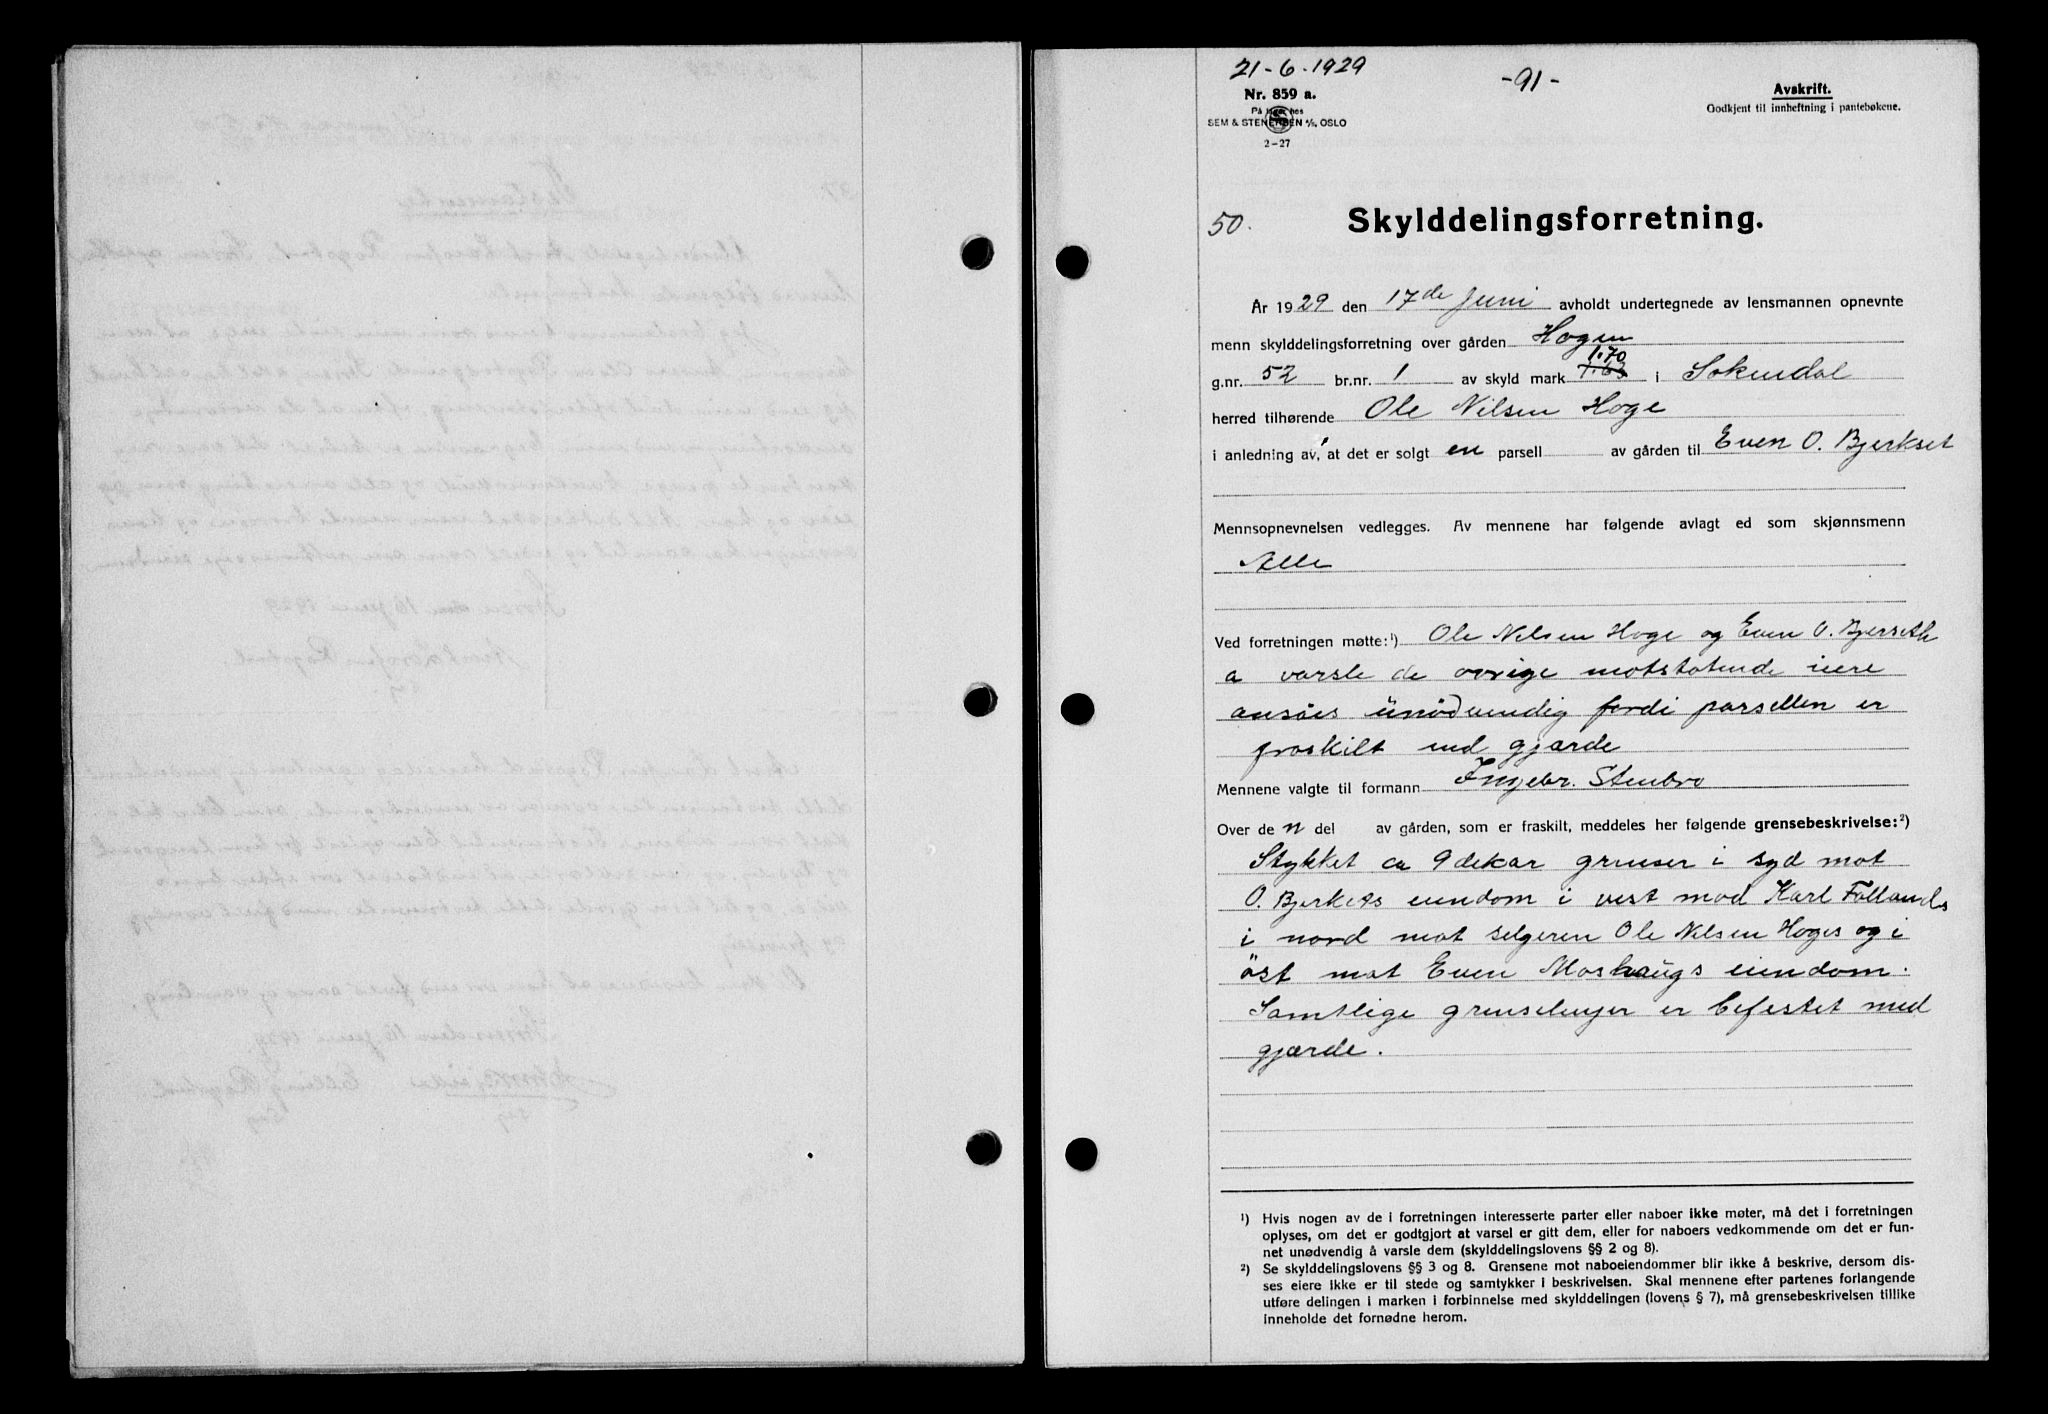 21-6-1929
-91-
Nr. 859 a.
På lager hos
SEM & STENERSEN A/S, OSLO
2-27
Avskrift.
Godkjent til innheftning i pantebøkene.
50.
Skylddelingsforretning.
År 1929 den 17de Juni avholdt undertegnede av lensmannen opnevnte
menn skylddelingsforretning over gården Hogen
g.nr. 52 br.nr. 1 av skyld mark 1.63 1.70 i Sokendal
herred tilhørende Ole Nilsen Hoge
i anledning av, at det er solgt en parsell av gården til Even O. Bjerkset
Mennsopnevnelsen vedlegges. Av mennene har følgende avlagt ed som skjønnsmenn
Alle
Ved forretningen møtte:¹) Ole Nilsen Hoge og Even O. Bjerseth
a varsle de øvrige motstøtende iere
ansöes unödvendig fordi parsellen er
fraskilt med gjærde
Mennene valgte til formann Ingebr. Stenbro
Over den del av gården, som er fraskilt, meddeles her følgende grensebeskrivelse:²)
Stykket ca 9 dekar grenser i syd mot
O. Bjerkets eiendom i vest mod Karl Føllands
i nord mot selgeren Ole Nilsen Hoges og i
öst mot Even Moshaugs eiendom.
Samtlige grenselinjer er befestet med
gjærde.
¹) Hvis nogen av de i forretningen interesserte parter eller naboer ikke møter, må det i forretningen
oplyses, om det er godtgjort at varsel er gitt dem, eller for naboers vedkommende om det er fun-
net unødvendig å varsle dem (skylddelingslovens §§ 2 og 8).
²) Se skylddelingslovens §§ 3 og 8. Grensene mot naboeiendommer blir ikke å beskrive, dersom dis-
ses eiere ikke er til stede og samtykker i beskrivelsen. Skal mennene efter partenes forlangende
utføre delingen i marken i forbinnelse med skylddelingen (lovens § 7), må grensebeskrivelsen tillike
inneholde det fornødne herom.